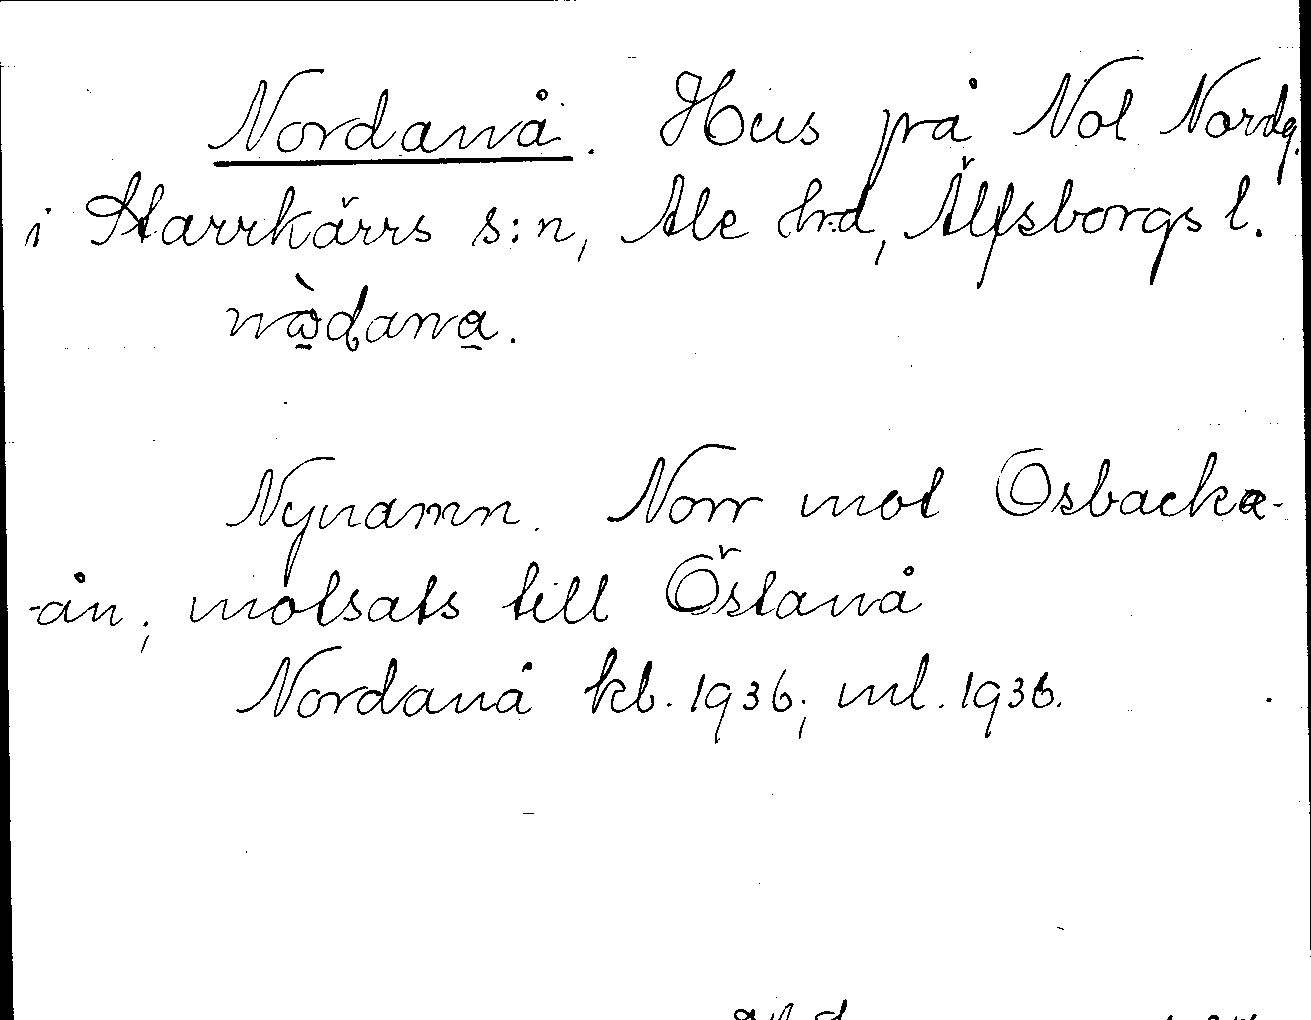 Nordanå. Hus på Nol Nordg.
i Starrkärrs s:n, Ale hd, Älfsborgs l.
nàdana.
Nynamn. Norr mot Osbacka-
-ån; motsats till Östanå
Nordanå kb. 1936; ml. 1936.